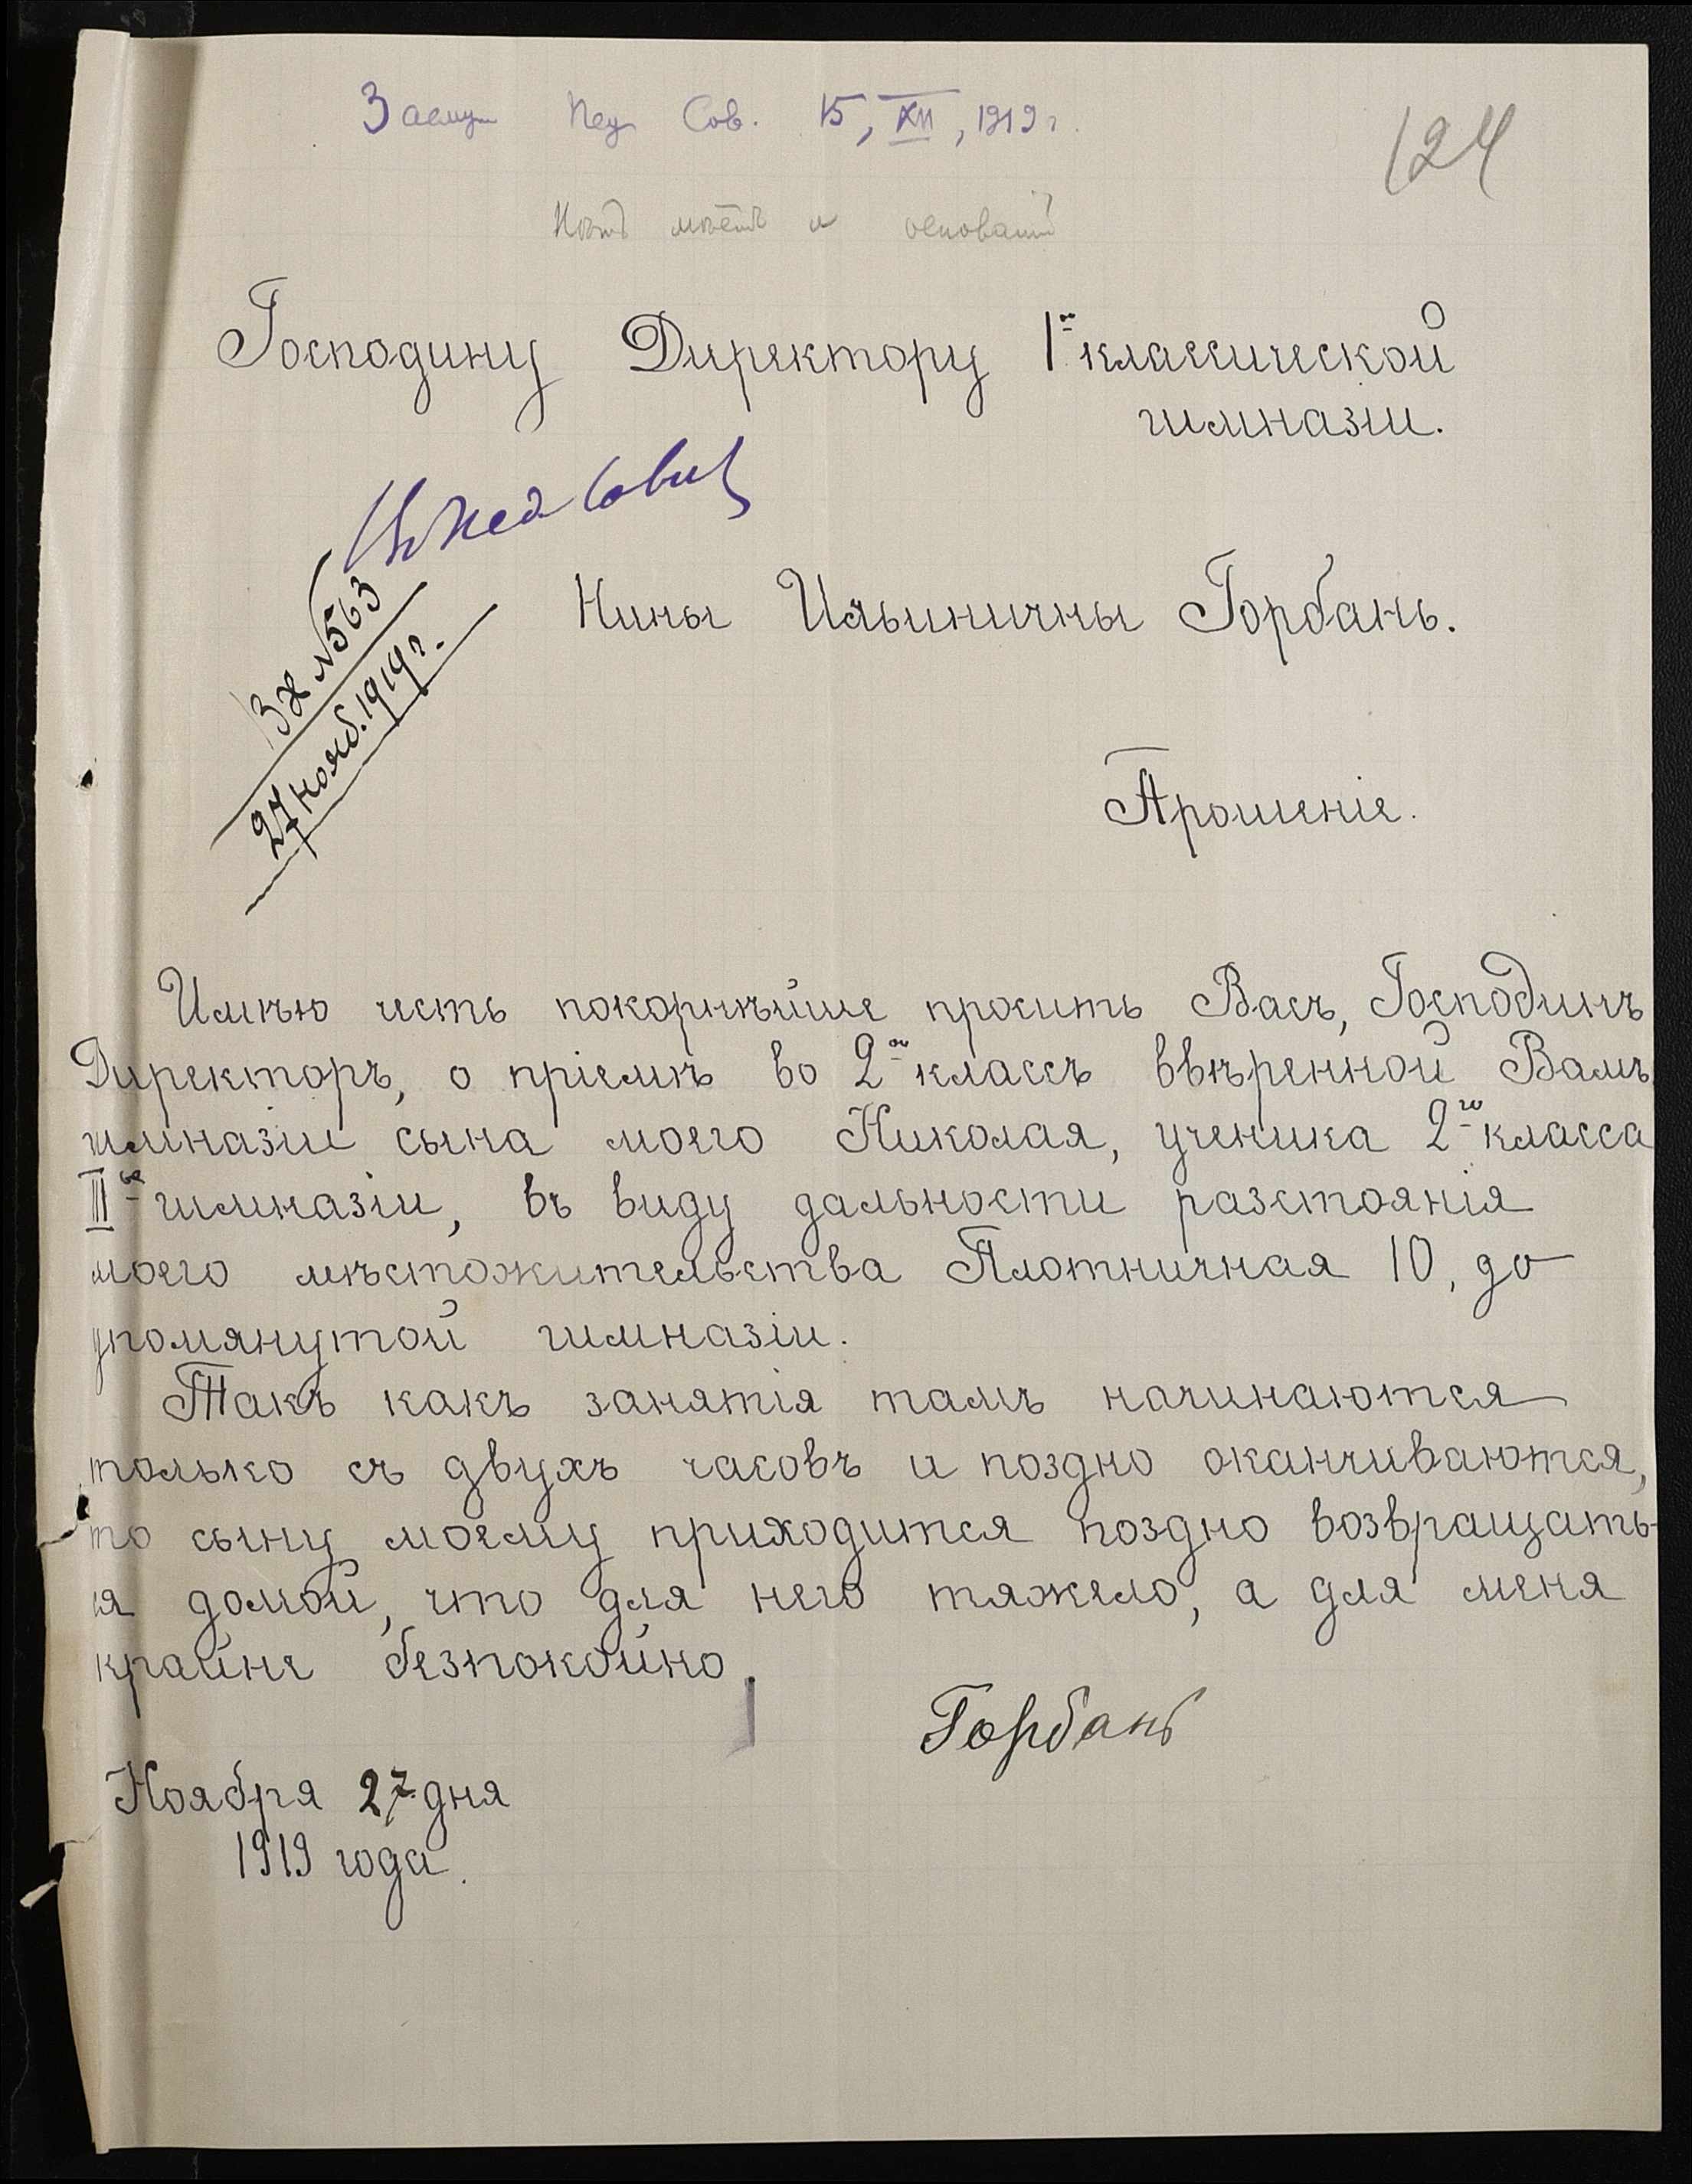 Засл. Пед Сов. 15, XII, 1919 г.
124
Нѣтъ мѣстъ и основаній
Господину Директору 1й классической
гимназіи.
Въ Пед Совѣт
Нины Ильиничны Горбань.
Вх №563
27 нояб. 1919 г.
Прошеніе.
Имѣю честь покорнѣйше просить Васъ, Господинъ
Директоръ, о пріемѣ во 2ой классъ ввѣренной Вамъ
гимназіи сына моего Николая, ученика 2го класса
IIIей гимназіи, въ виду дальности разстоянія
моего мѣстожительства Плотничная 10, до
упомянутой гимназіи.
Такъ какъ занятія тамъ начинаются
только съ двухъ часовъ и поздно оканчиваются,
то сыну моему приходится поздно возвращать-
ся домой, что для него тяжело, а для меня
крайне безпокойно.
Горбань
Ноября 27 дня
1919 года.